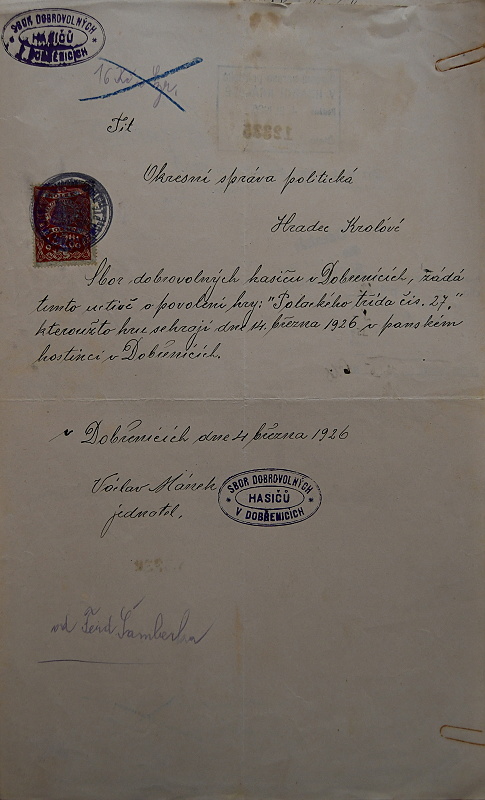 SBOR DOBROVOLNÝCH
HASIČŮ
V DOBŘENICÍCH
16 Kč
Tit
12325
Okresní správa politická
Hradec Králové
Sbor dobrovolných hasičů v Dobřenicích, žádá
tímto uctivě o povolení hry: "Palackého třída čís. 27."
kteroužto hru sehrají dne 14. března 1926 v panském
hostinci v Dobřenicích.
v Dobřenicích dne 4 března 1926
Václav Mánek
jednatel.
SBOR DOBROVOLNÝCH
HASIČŮ
V DOBŘENICÍCH
od Ferd Šamberka